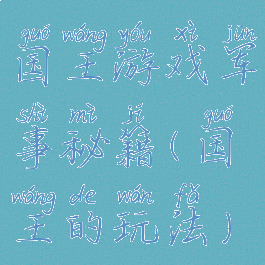 guó wáng yóu xì jūn
国王游戏军
shì mì jí guó
事秘籍(国
wáng de wán fǎ
王的玩法)